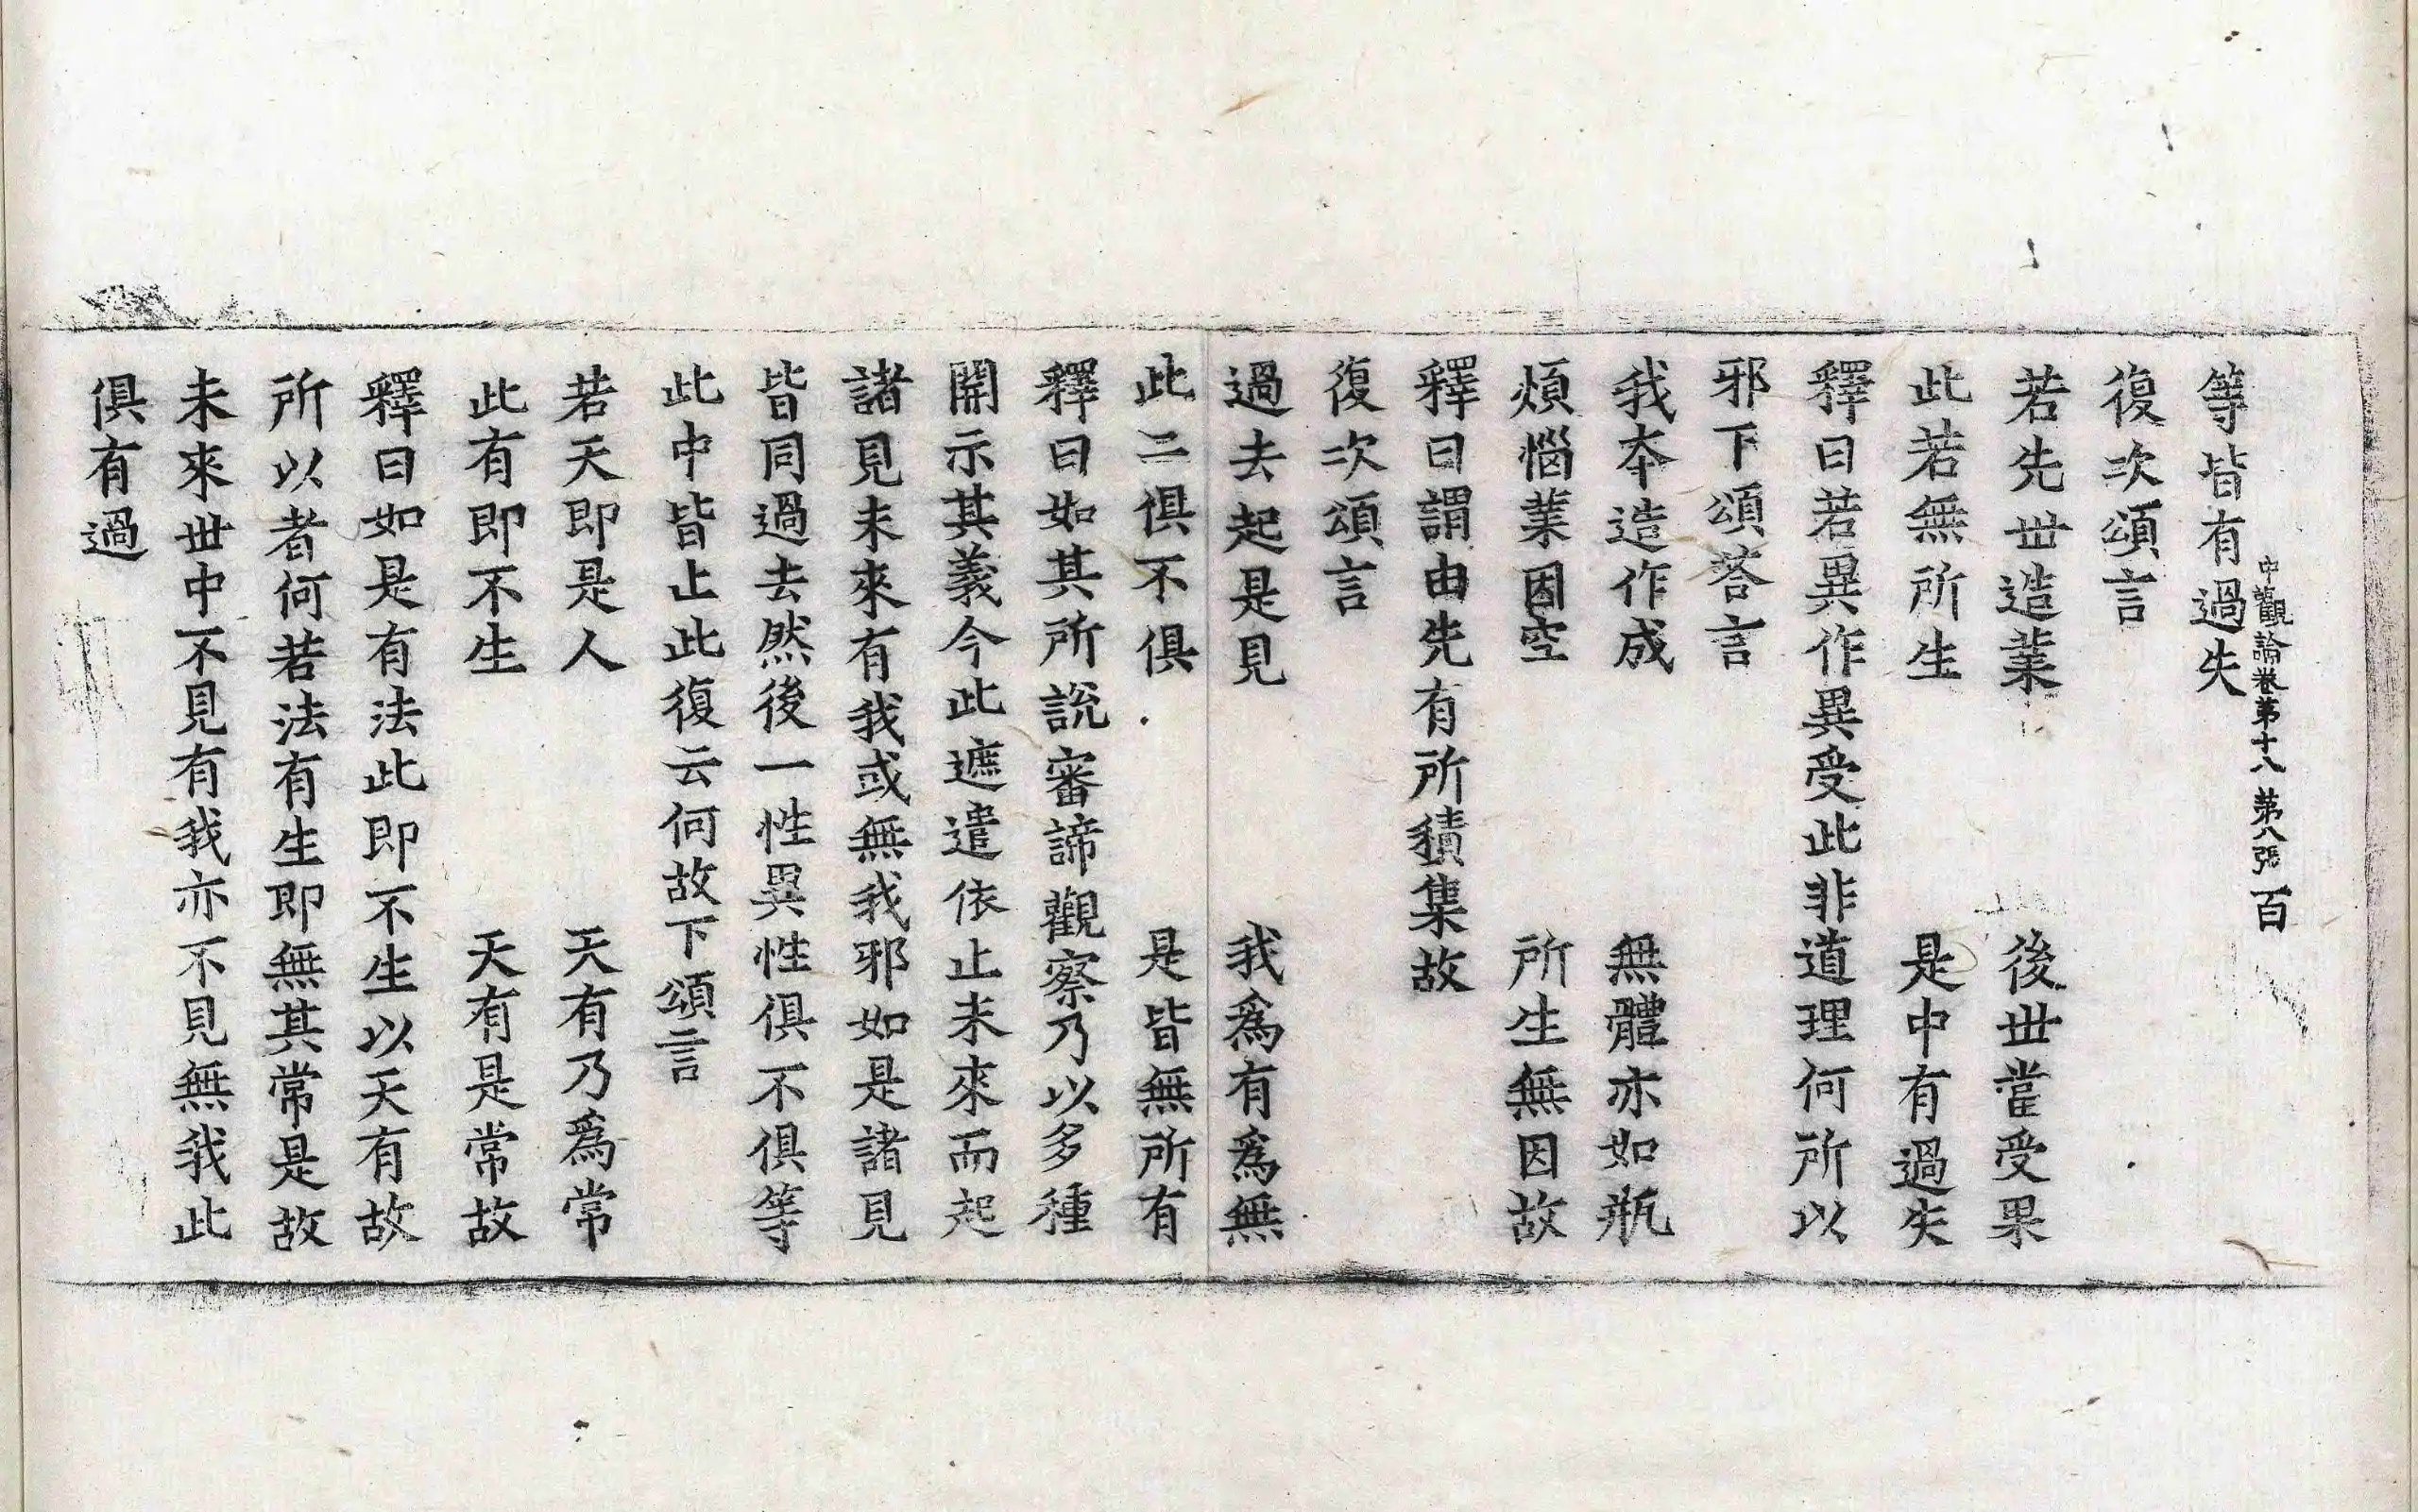 等皆有過失
中觀論卷第十八 第八張 百
復次頌言
若先世造業 後世當受果
此若無所生 是中有過失
釋曰若異作異受此非道理何所以
邪下頌荅言
我夲造作成 無體亦如瓶
煩惱業因空 所生無因故
釋曰謂由先有所積集故
復次頌言
過去起是見 我爲有爲無
此二俱不俱 是皆無所有
釋曰如其所說審諦觀察乃以多種
開示其義今此遮遣依止未來而起
諸見未來有我或無我邪如是諸見
皆同過去然後一性異性俱不俱等
此中皆止此復云何故下頌言
若天即是人 天有乃爲常
此有即不生 天有是常故
釋曰如是有法此即不生以天有故
所以者何若法有生即無其常是故
未來世中不見有我亦不見無我此
俱有過